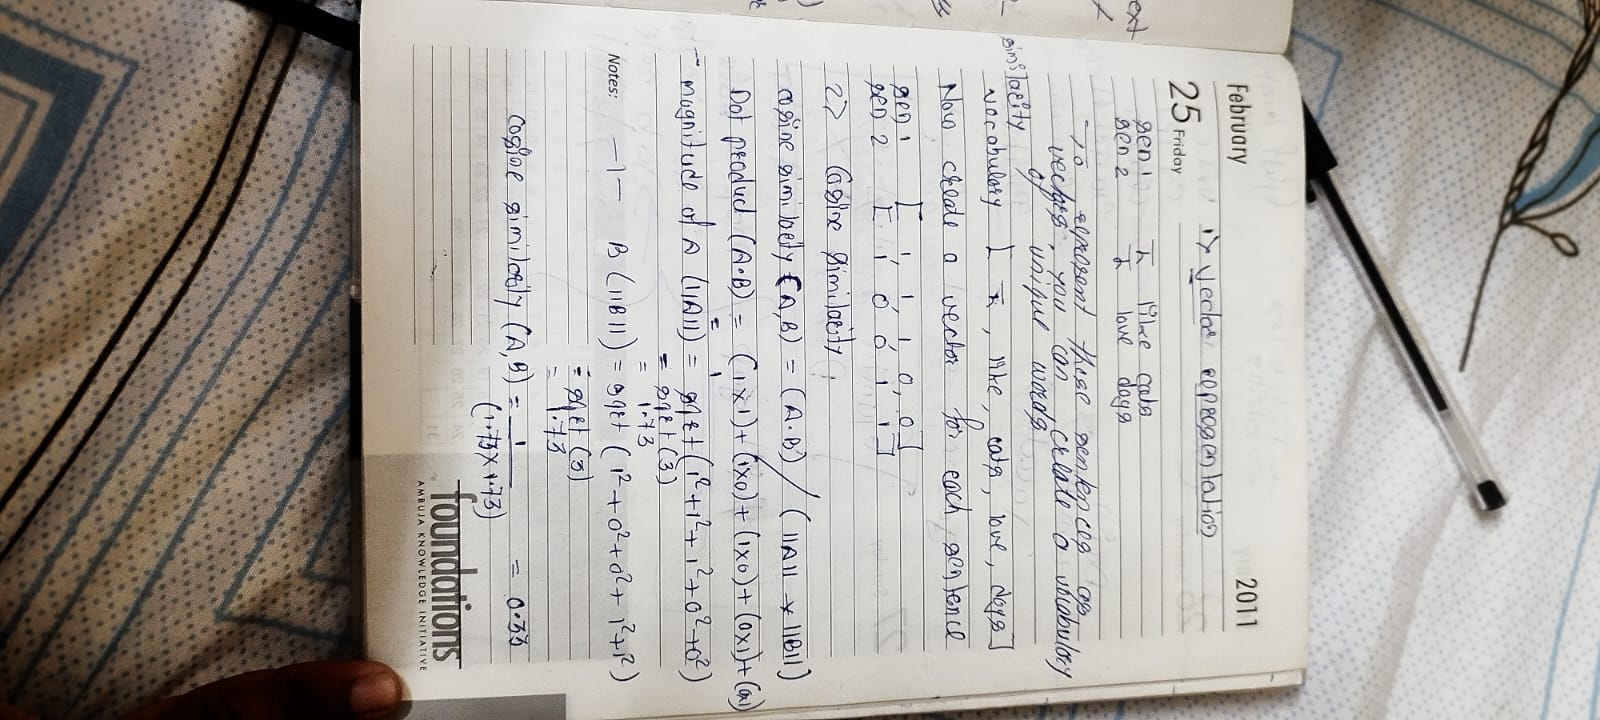 February 2011
25 Friday
1> Vector representation
sen 1 I like cats
sen 2 I love dogs
→ To represent these sentences as
vectors, you can create a vocabulary
of unique words
similarity
vocabulary [ I, like, cats, love, dogs]
Now create a vector for each sentence
sen 1 [ 1, 1, 1, 0, 0]
sen 2 [ 1 0 0 1, 1]
2> Cosine similarity
cosine similarity (A,B) = (A·B) / (||A|| * ||B||)
Dot product (A·B) = (1x1)+(1x0)+(1x0)+(0x1)+
= 1
- magnitude of A (||A||) = sqrt (1²+1²+1²+0²+0²)
= sqrt (3)
= 1.73
Notes: -1- B (||B||) = sqrt (1²+0²+0²+1²+1²)
= sqrt (3)
= 1.73
cosine similarity (A,B) = 1 = 0.33
(1.73 x 1.73)
foundations
AMBUJA KNOWLEDGE INITIATIVE